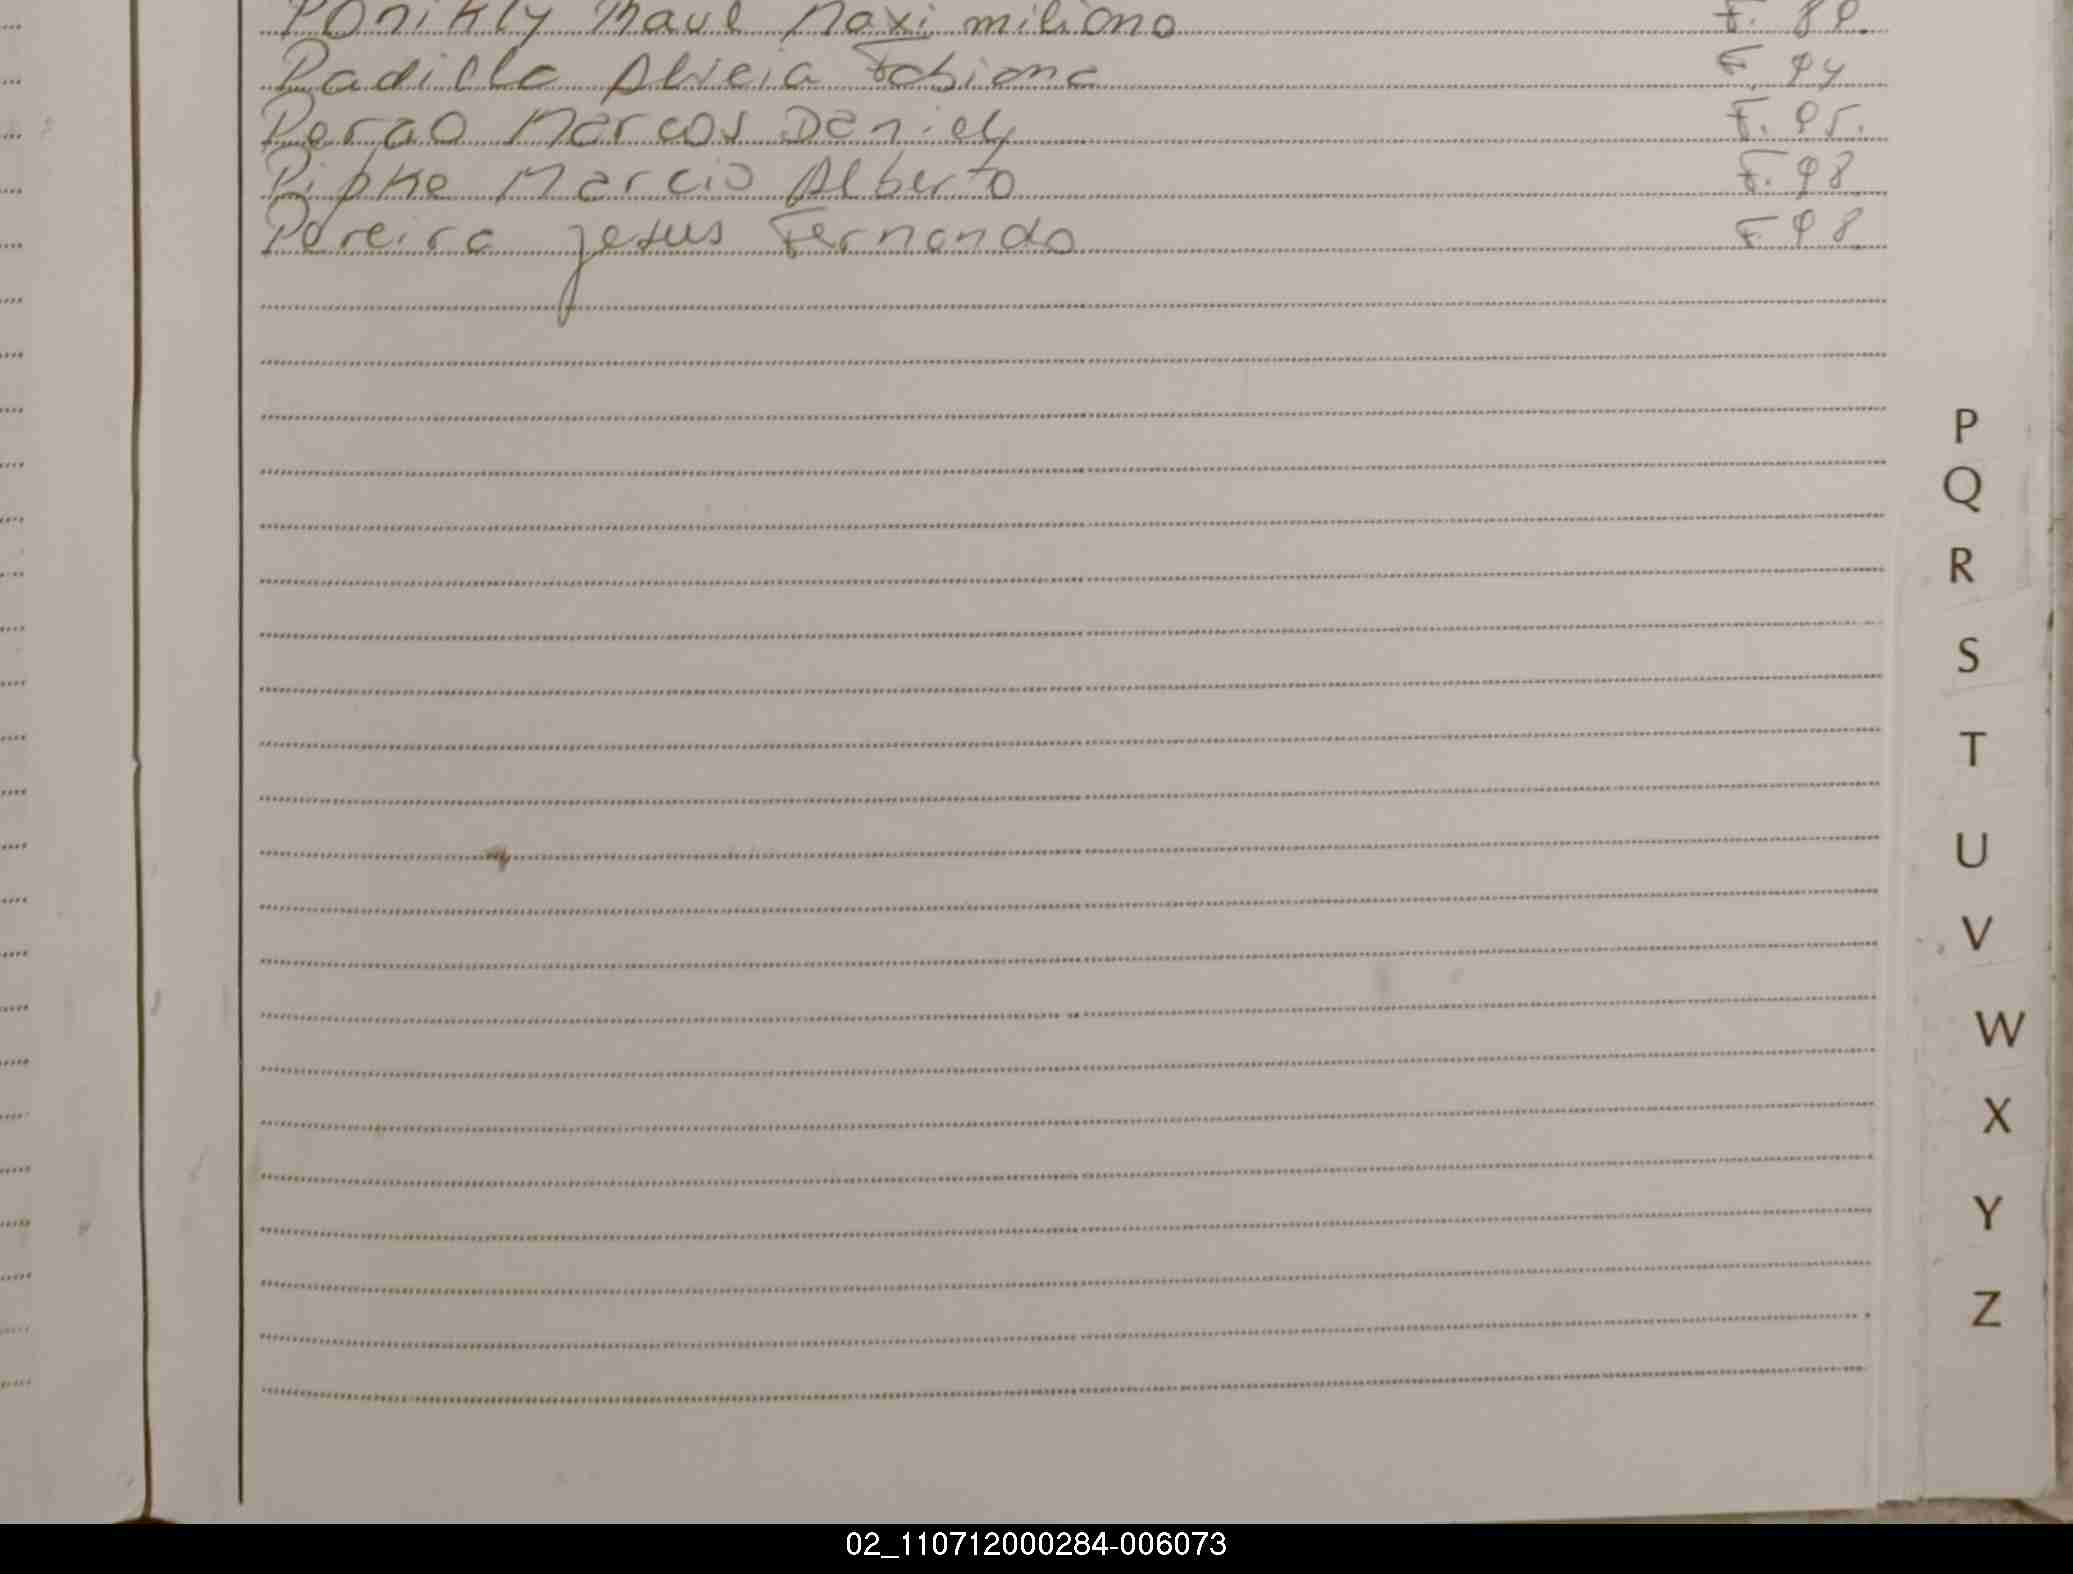 Ponikly Raul Maximiliano F. 89.
Padilla Alicia Fabiana F. 94
Perao Marcos Daniel F. 95.
Pipke Marcio Alberto F. 98
Pereira Jesus Fernando F 98.
P
Q
R
S
T
U
V
W
X
Y
Z
02_110712000284-006073